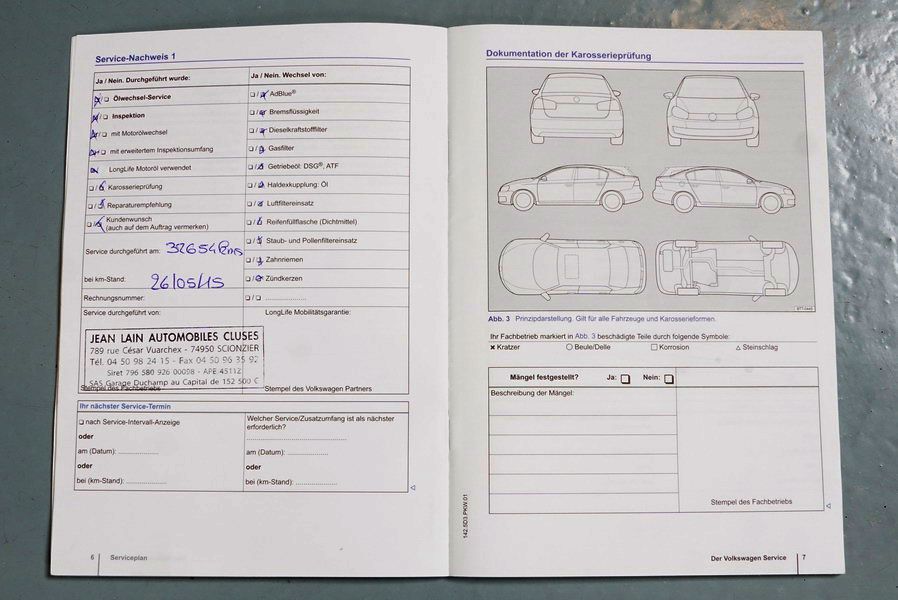 Service-Nachweis 1
Ja / Nein. Durchgeführt wurde:
Ölwechsel-Service
Inspektion
mit Motorölwechsel
mit erweitertem Inspektionsumfang
LongLife Motoröl verwendet
Karosserieprüfung
Reparaturempfehlung
Kundenwunsch
(auch auf dem Auftrag vermerken)
Service durchgeführt am: 32654 Kms
bei km-Stand: 26/05/15
Rechnungsnummer:
Service durchgeführt von:
JEAN LAIN AUTOMOBILES CLUSES
789 rue César Vuarchex - 74950 SCIONZIER
Tél. 04 50 98 24 15 - Fax 04 50 96 35 92
Siret 796 580 926 00098 - APE 4511Z
SAS Garage Duchamp au Capital de 152 500 €
Stempel des Fachbetriebs
Ja / Nein. Wechsel von:
AdBlue®
Bremsflüssigkeit
Dieselkraftstofffilter
Gasfilter
Getriebeöl: DSG®, ATF
Haldexkupplung: Öl
Luftfiltereinsatz
Reifenfüllflasche (Dichtmittel)
Staub- und Pollenfiltereinsatz
Zahnriemen
Zündkerzen
LongLife Mobilitätsgarantie:
Stempel des Volkswagen Partners
Ihr nächster Service-Termin
nach Service-Intervall-Anzeige
oder
am (Datum): ....................
oder
bei (km-Stand): ....................
Welcher Service/Zusatzumfang ist als nächster
erforderlich?
am (Datum): ....................
oder
bei (km-Stand): ....................
6 Serviceplan
Dokumentation der Karosserieprüfung
Abb. 3 Prinzipdarstellung. Gilt für alle Fahrzeuge und Karosserieformen.
Ihr Fachbetrieb markiert in Abb. 3 beschädigte Teile durch folgende Symbole:
Kratzer Beule/Delle Korrosion Steinschlag
Mängel festgestellt? Ja: Nein:
Beschreibung der Mängel:
Stempel des Fachbetriebs
142.5D3.PKW.01
Der Volkswagen Service 7